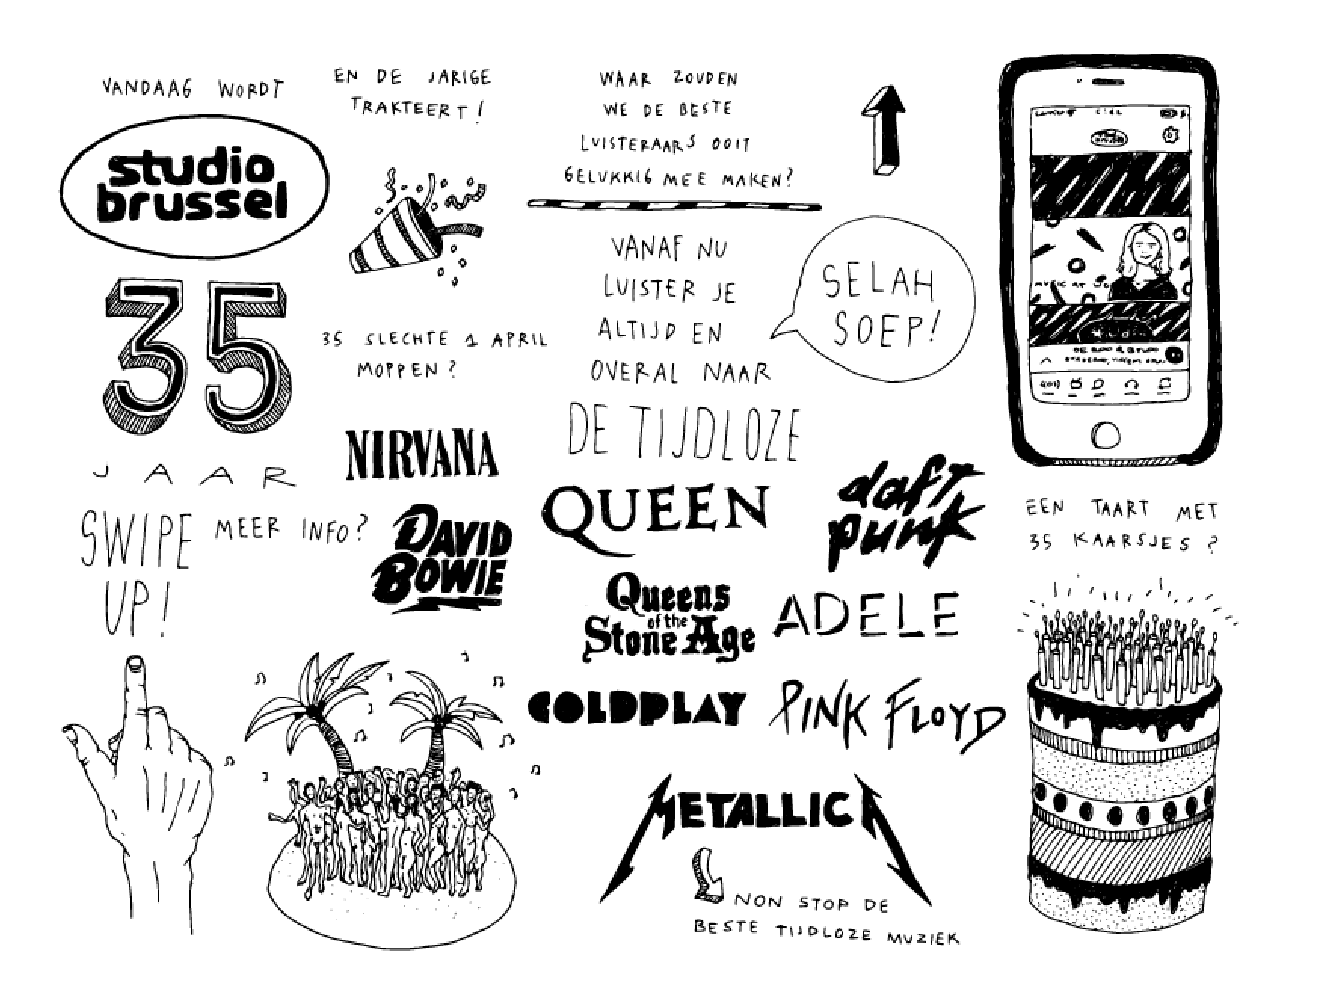 VANDAAG WORDT
studio
brussel
35
JAAR
EN DE JARIGE
TRAKTEERT!
35 SLECHTE 1 APRIL
MOPPEN?
WAAR ZOUDEN
WE DE BESTE
LUISTERAARS OOIT
GELUKKIG MEE MAKEN?
VANAF NU
LUISTER JE
ALTIJD EN
OVERAL NAAR
DE TIJDLOZE
SELAH
SOEP!
NIRVANA
DAVID
BOWIE
QUEEN
daft
punk
Queens
of the
Stone Age
ADELE
COLDPLAY
PINK FLOYD
METALLICA
NON STOP DE
BESTE TIJDLOZE MUZIEK
SWIPE
UP!
MEER INFO?
EEN TAART MET
35 KAARSJES?